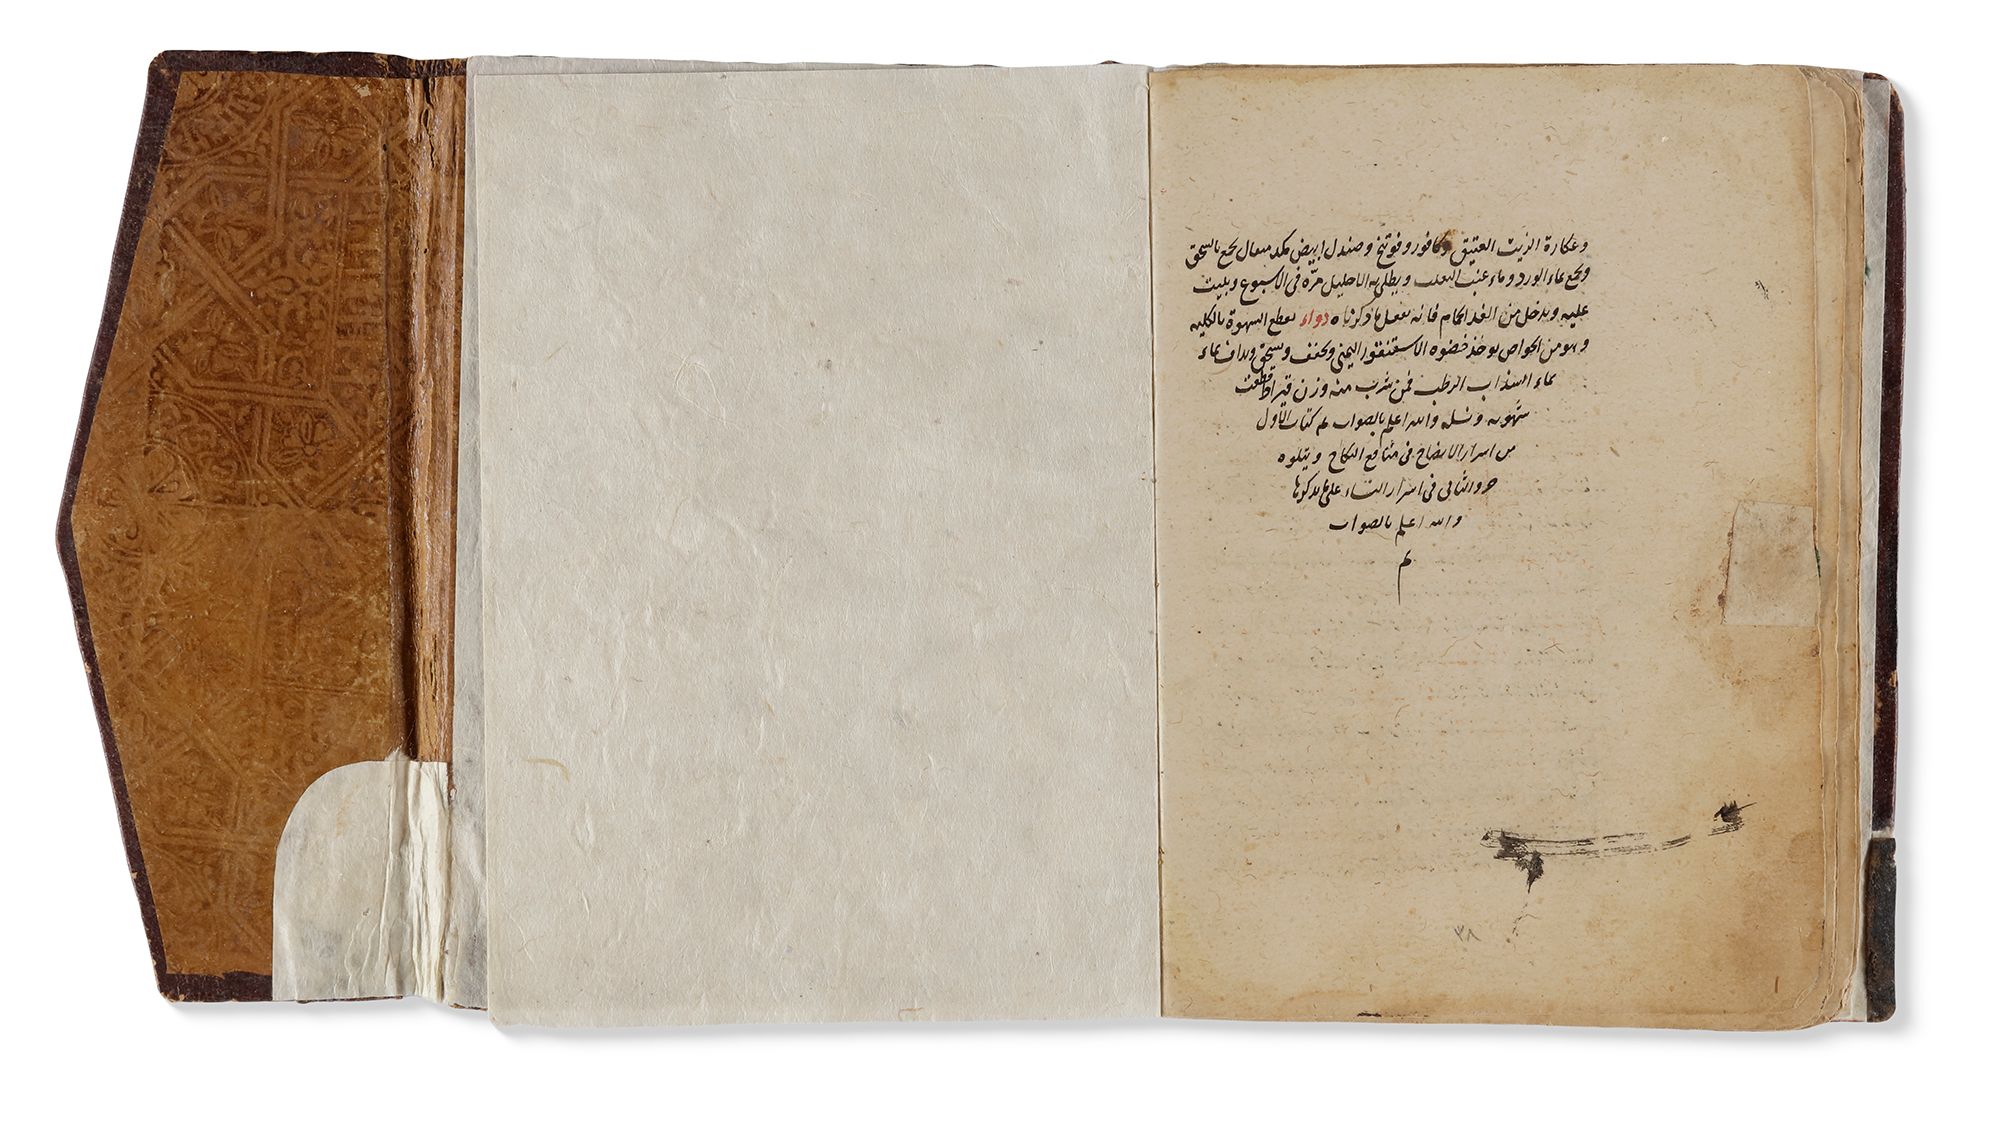 وعكارة الزيت العتيق وكافور وفوتنج وصندل ابيض مكد مثقال يجمع بالسحق
ويجمع بماء الورد وماء عنب الثعلب ويطلى به الاحليل مرّه فى الاسبوع ويبيت
عليه ويدخل من الغد الحمام فانه يفعل ما ذكرناه دواء يقطع الشهوة بالكليه
وهو من الخواص يوخذ خصوه الاسقنقور اليمنى ويجفف ويسحق ويداف بماء
بماء السذاب الرطب فمن شرب منه وزن قيراط قطعت
شهوته ونسله والله اعلم بالصواب تم كتاب الاول
من اسرار الايضاح فى منافع النكاح ويتلوه
الثانى فى اسرار النساء على ما يذكرها
والله اعلم بالصواب
تم
٣٨